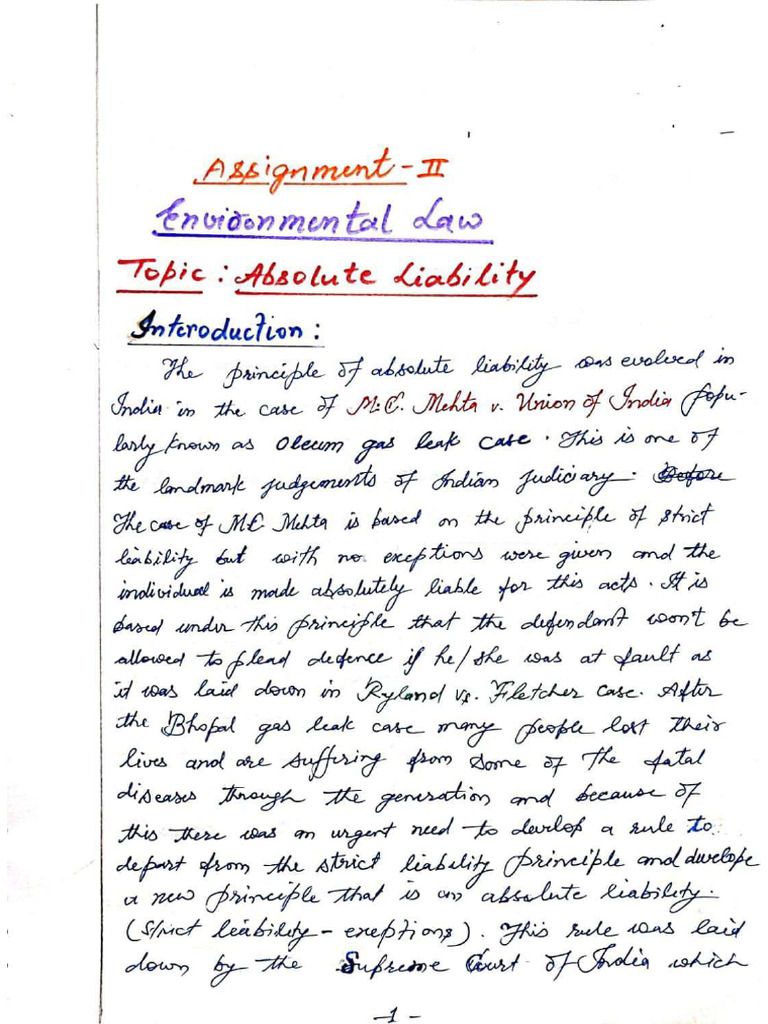 Assignment - II
Environmental Law
Topic : Absolute Liability
Introduction :
The principle of absolute liability was evolved in
India in the case of M.C. Mehta v. Union of India popu-
larly known as Oleum gas leak case. This is one of
the landmark judgements of Indian judiciary. Before
The case of M.C Mehta is based on the principle of strict
liability but with no exceptions were given and the
individual is made absolutely liable for this acts. It is
based under this principle that the defendant won't be
allowed to plead defence if he/she was at fault as
it was laid down in Ryland vs. Fletcher case. After
the Bhopal gas leak case many people lost their
lives and are suffering from some of the fatal
diseases through the generation and because of
this there was an urgent need to develop a rule to
depart from the strict liability principle and dwelope
a new principle that is an absolute liability.
(Strict liability - exeptions). This rule was laid
down by the Supreme Court of India which
-1-